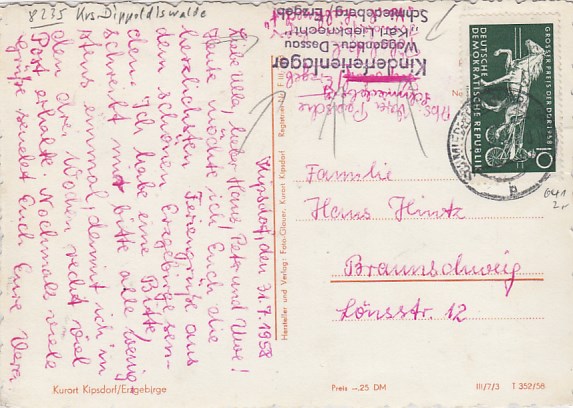 8235 Krs. Dippoldiswalde
Kipsdorf, den 31.7.1958
Liebe Ulla, lieber Hans, Peter und Uwe!
Heute möchte ich Euch die
herzlichsten Feriengrüße aus
dem schönen Erzgebirge sen-
den. Ich habe eine Bitte,
schreibt mir bitte alle wenig-
stens einmal, damit ich in
den drei Wochen recht viel
Post erhalte. Nochmals viele
Grüße sendet Euch Eure Vera
Kurort Kipsdorf/Erzgebirge
Hersteller und Verlag: Foto-Glauer, Kurort Kipsdorf
Kinderferienlager
Waggonbau Dessau
"Karl Liebknecht"
Schmiedeberg/Erzgeb
Abs. Vera
Schmiedeberg
Erzgeb
GROSSER PREIS DER DDR 1958
DEUTSCHE
DEMOKRATISCHE REPUBLIK
10
b
Familie
Hans Hintz
Braunschweig
Lönsstr. 12
641
2r
Preis -.25 DM
III/7/3 T 352/58